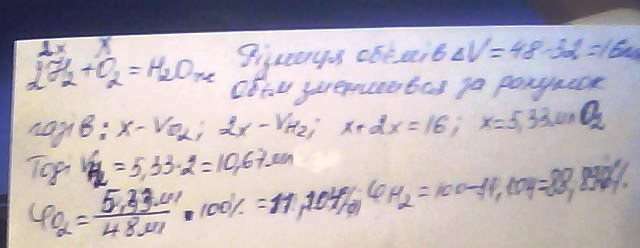 2x x
2H₂ + O₂ = H₂O Різниця обємів ΔV = 48-32 = 16мл
Обєм зменшився за рахунок
газів: x - V O₂; 2x - V H₂; x + 2x = 16; x = 5,33мл O₂
Тоді V H₂ = 5,33·2 = 10,67мл
φO₂ = 5,33мл / 48мл · 100% = 11,104%; φH₂ = 100-11,104 = 88,896%.